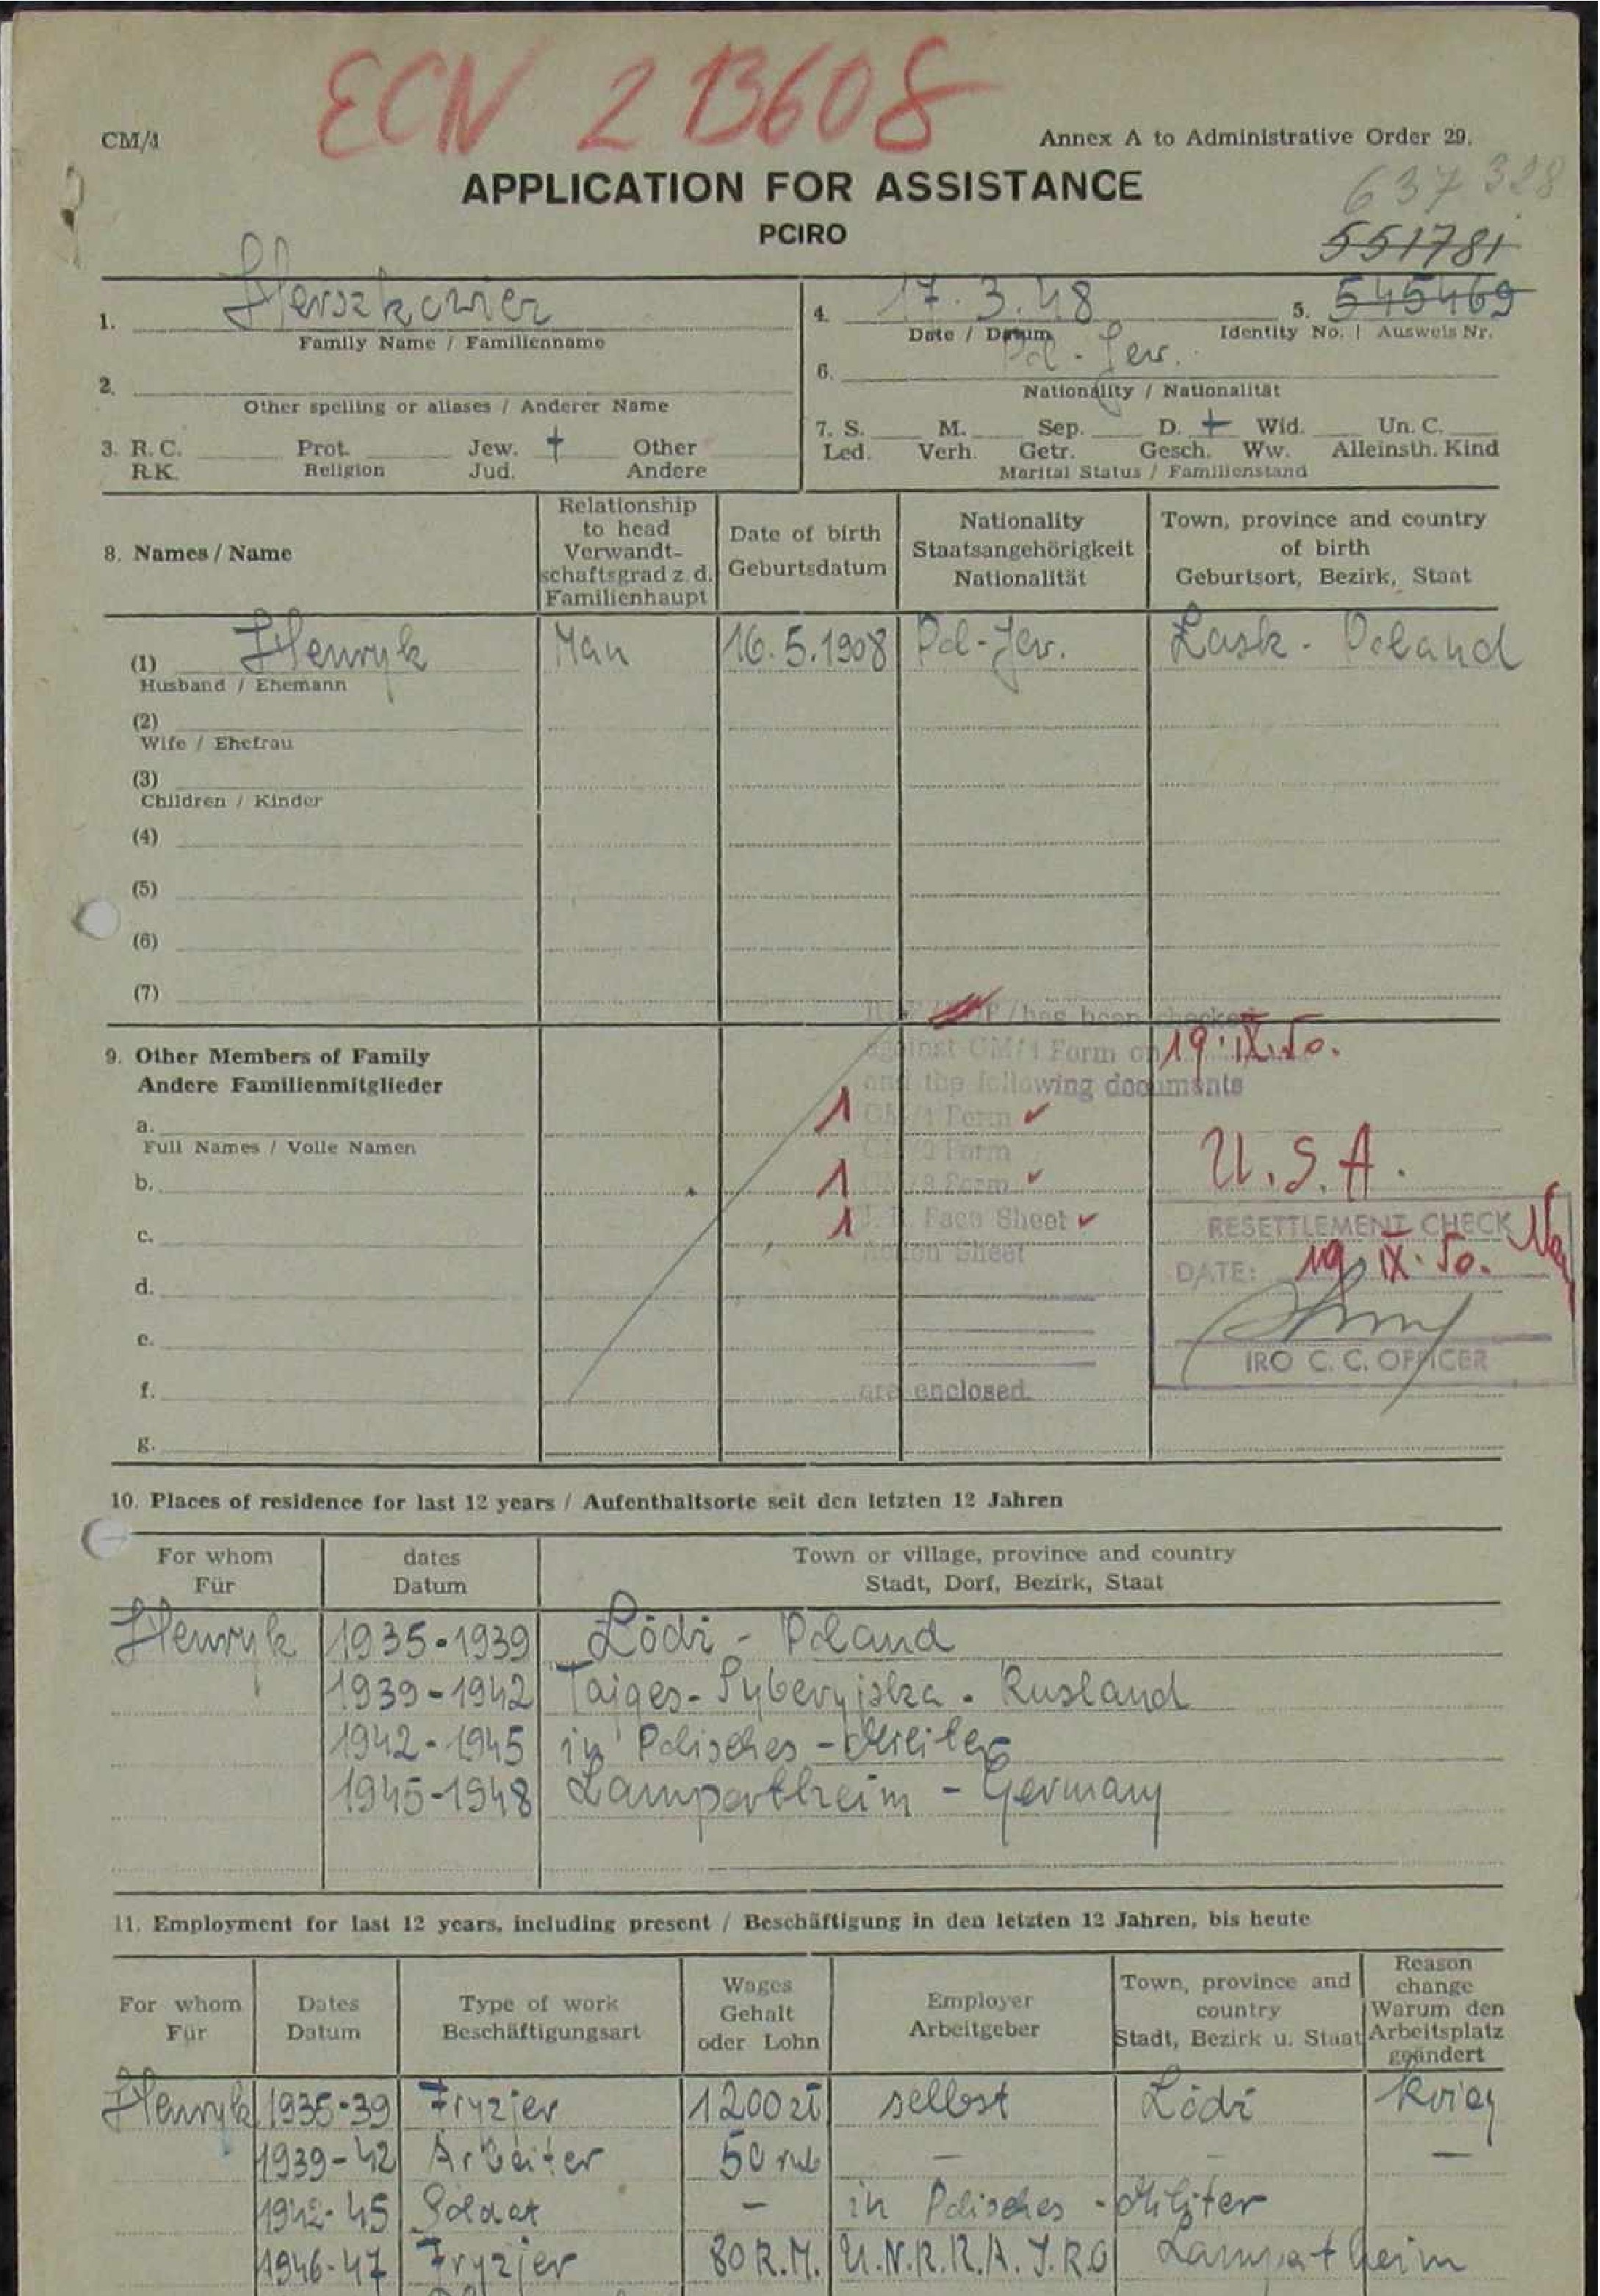 ECN 213608
CM/1
Annex A to Administrative Order 29.
637 328
APPLICATION FOR ASSISTANCE
PCIRO
551781
1. Herszkowicz
Family Name / Familienname
4. 17.3.48
Date / Datum
5. 545469
Identity No. | Ausweis Nr.
2.
Other spelling or aliases / Anderer Name
6. Pol - Jew.
Nationality / Nationalität
3. R. C. Prot. Jew. + Other
R.K. Religion Jud. Andere
7. S. M. Sep. D. + Wid. Un. C.
Led. Verh. Getr. Gesch. Ww. Alleinsth. Kind
Marital Status / Familienstand
8. Names / Name
Relationship
to head
Verwandt-
schaftsgrad z. d.
Familienhaupt
Date of birth
Geburtsdatum
Nationality
Staatsangehörigkeit
Nationalität
Town, province and country
of birth
Geburtsort, Bezirk, Staat
(1) Henryk Man 16.5.1908 Pol-Jew. Łask - Poland
Husband / Ehemann
(2)
Wife / Ehefrau
(3)
Children / Kinder
(4)
(5)
(6)
(7)
has been checked
against CM/1 Form on 19.IX.50.
and the following documents
1 CM/1 Form ✓
Form
1 Form ✓
1 Face Sheet ✓
Sheet
are enclosed.
9. Other Members of Family
Andere Familienmitglieder
a.
Full Names / Volle Namen
b.
c.
d.
e.
f.
g.
U.S.A.
RESETTLEMENT CHECK
DATE: 19.IX.50.
IRO C. C. OFFICER
10. Places of residence for last 12 years / Aufenthaltsorte seit den letzten 12 Jahren
For whom
Für
dates
Datum
Town or village, province and country
Stadt, Dorf, Bezirk, Staat
Henryk 1935-1939 Łódź - Poland
1939-1942 Tajges-Syberyjska - Rusland
1942-1945 in Polisches -
1945-1948 Lampertheim - Germany
11. Employment for last 12 years, including present / Beschäftigung in den letzten 12 Jahren, bis heute
For whom
Für
Dates
Datum
Type of work
Beschäftigungsart
Wages
Gehalt
oder Lohn
Employer
Arbeitgeber
Town, province and
country
Stadt, Bezirk u. Staat
Reason
change
Warum den
Arbeitsplatz
geändert
Henryk 1935-39 Fryzjer 1200 zł selbst Łódź Krieg
1939-42 Arbeiter 50 rub — — —
1942-45 Soldat — in Polisches - Militer
1946-47 Fryzjer 80 R.M. U.N.R.R.A. I.R.O Lampatheim